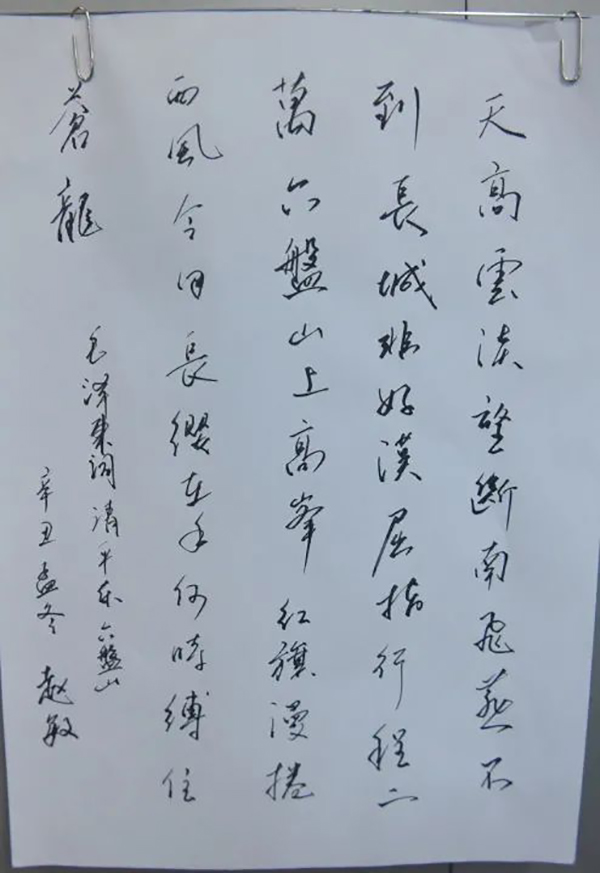 天高雲淡望斷南飛燕不
到長城非好漢屈指行程二
萬六盤山上高峯紅旗漫捲
西風今日長纓在手何時縛住
蒼龍
毛泽東词清平乐六盤山
辛丑孟冬 赵敏